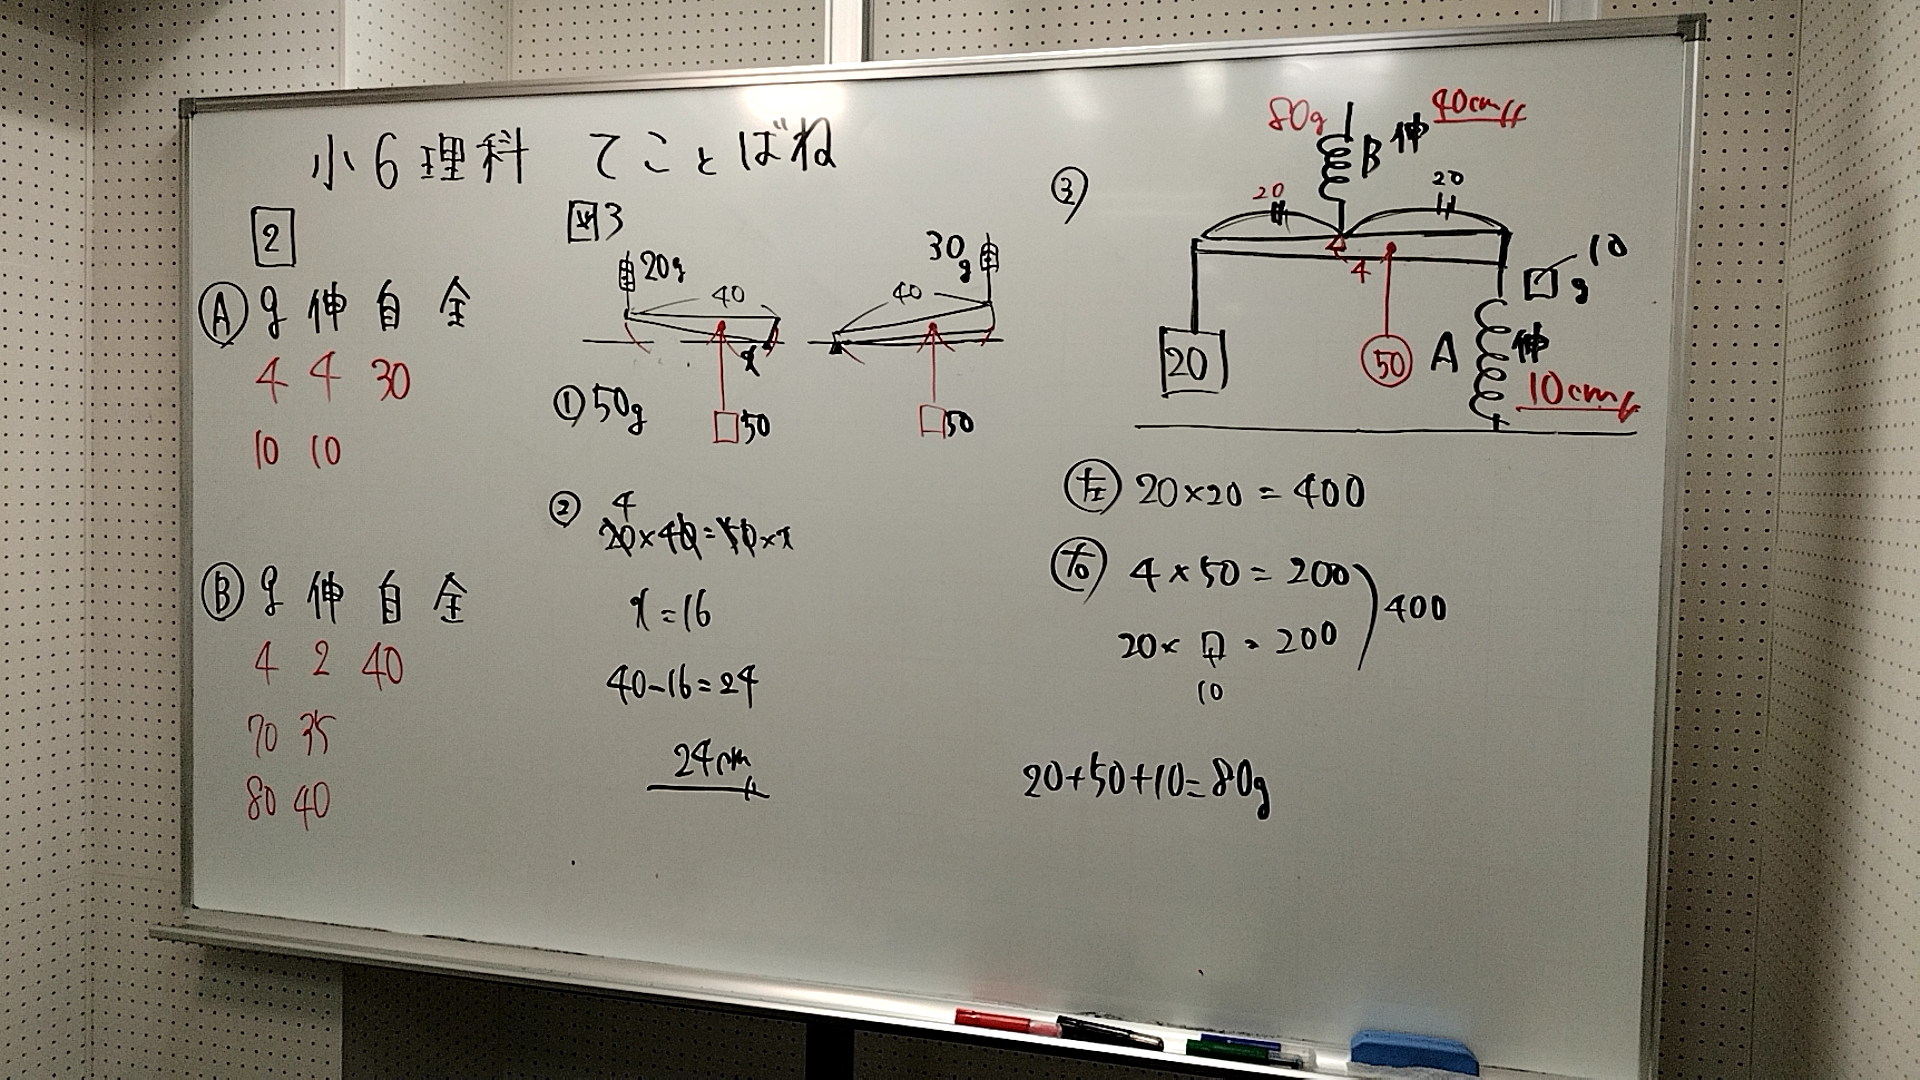 小6理科 てことばね
2
Ⓐ g 伸 自 全
4 4 30
10 10
Ⓑ g 伸 自 全
4 2 40
70 35
80 40
図3
20g
40
x
50
30g
40
50
① 50g
②
4
20×40=50×x
x=16
40-16=24
24cm
③
80g
B 伸 40cm
20
20
4
20
50
A 伸 10cm
□g
10
左 20×20=400
右 4×50=200
20×□=200
10
400
20+50+10=80g